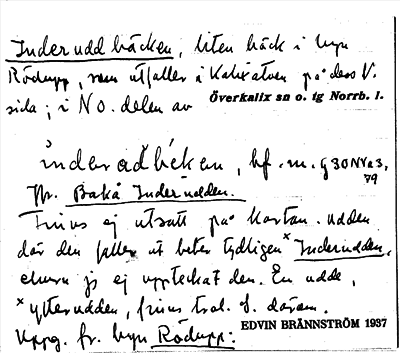 Inderuddbäcken, liten bäck i byn
Rödupp, som utfaller i Kalixälven på dess V.
sida; i NO. delen av Överkalix sn o. tg Norrb. l.
bf. m.
79
Jfr. Bakå Inderudden.
Finns ej utsatt på kartan. udden
där den faller ut heter tydligen × Inderudden,
ehuru jg ej upptecknat den. En udde,
× ytterudden, finns trol. o. därom.
Uppg. fr. byn Rödupp: EDVIN BRÄNNSTRÖM 1937